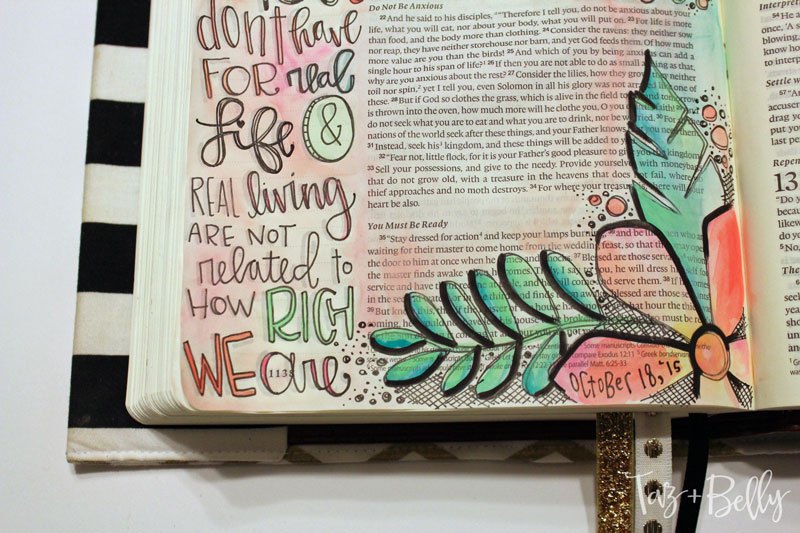 don't have
FOR real
life &
REAL living
ARE NOT
related to
HOW RICH
WE are
1138
Do Not Be Anxious
22 And he said to his disciples, "Therefore I tell you, do not be anxious about your
life, what you will eat, nor about your body, what you will put on. 23 For life is more
than food, and the body more than clothing. 24 Consider the ravens: they neither sow
nor reap, they have neither storehouse nor barn, and yet God feeds them. Of how much
more value are you than the birds! 25 And which of you by being anxious can add a
single hour to his span of life? 26 If then you are not able to do as small a thing as that,
why are you anxious about the rest? 27 Consider the lilies, how they grow: they neither
toil nor spin, yet I tell you, even Solomon in all his glory was not arrayed like one of
these. 28 But if God so clothes the grass, which is alive in the field today, and tomorrow
is thrown into the oven, how much more will he clothe you, O you of little faith! 29 And
do not seek what you are to eat and what you are to drink, nor be worried. 30 For all the
nations of the world seek after these things, and your Father knows that you need them.
31 Instead, seek his kingdom, and these things will be added to you.
32 "Fear not, little flock, for it is your Father's good pleasure to give you the kingdom.
33 Sell your possessions, and give to the needy. Provide yourselves with moneybags
that do not grow old, with a treasure in the heavens that does not fail, where no
thief approaches and no moth destroys. 34 For where your treasure is, there will your
heart be also.
You Must Be Ready
35 "Stay dressed for action and keep your lamps burning, and be like men who are
waiting for their master to come home from the wedding feast, so that they may open
the door to him at once when he comes and knocks. 37 Blessed are those servants whom
the master finds awake when he comes. Truly, I say to you, he will dress himself for
service and have them recline at table, and he will come and serve them. 38 If he comes
in the second watch, or in the third, and finds them awake, blessed are those servants!
39 But know this, that if the master of the house had known at what hour the thief was
coming, he would not have left his house to be broken into. You also must be
October 18, '15
Taz + Belly